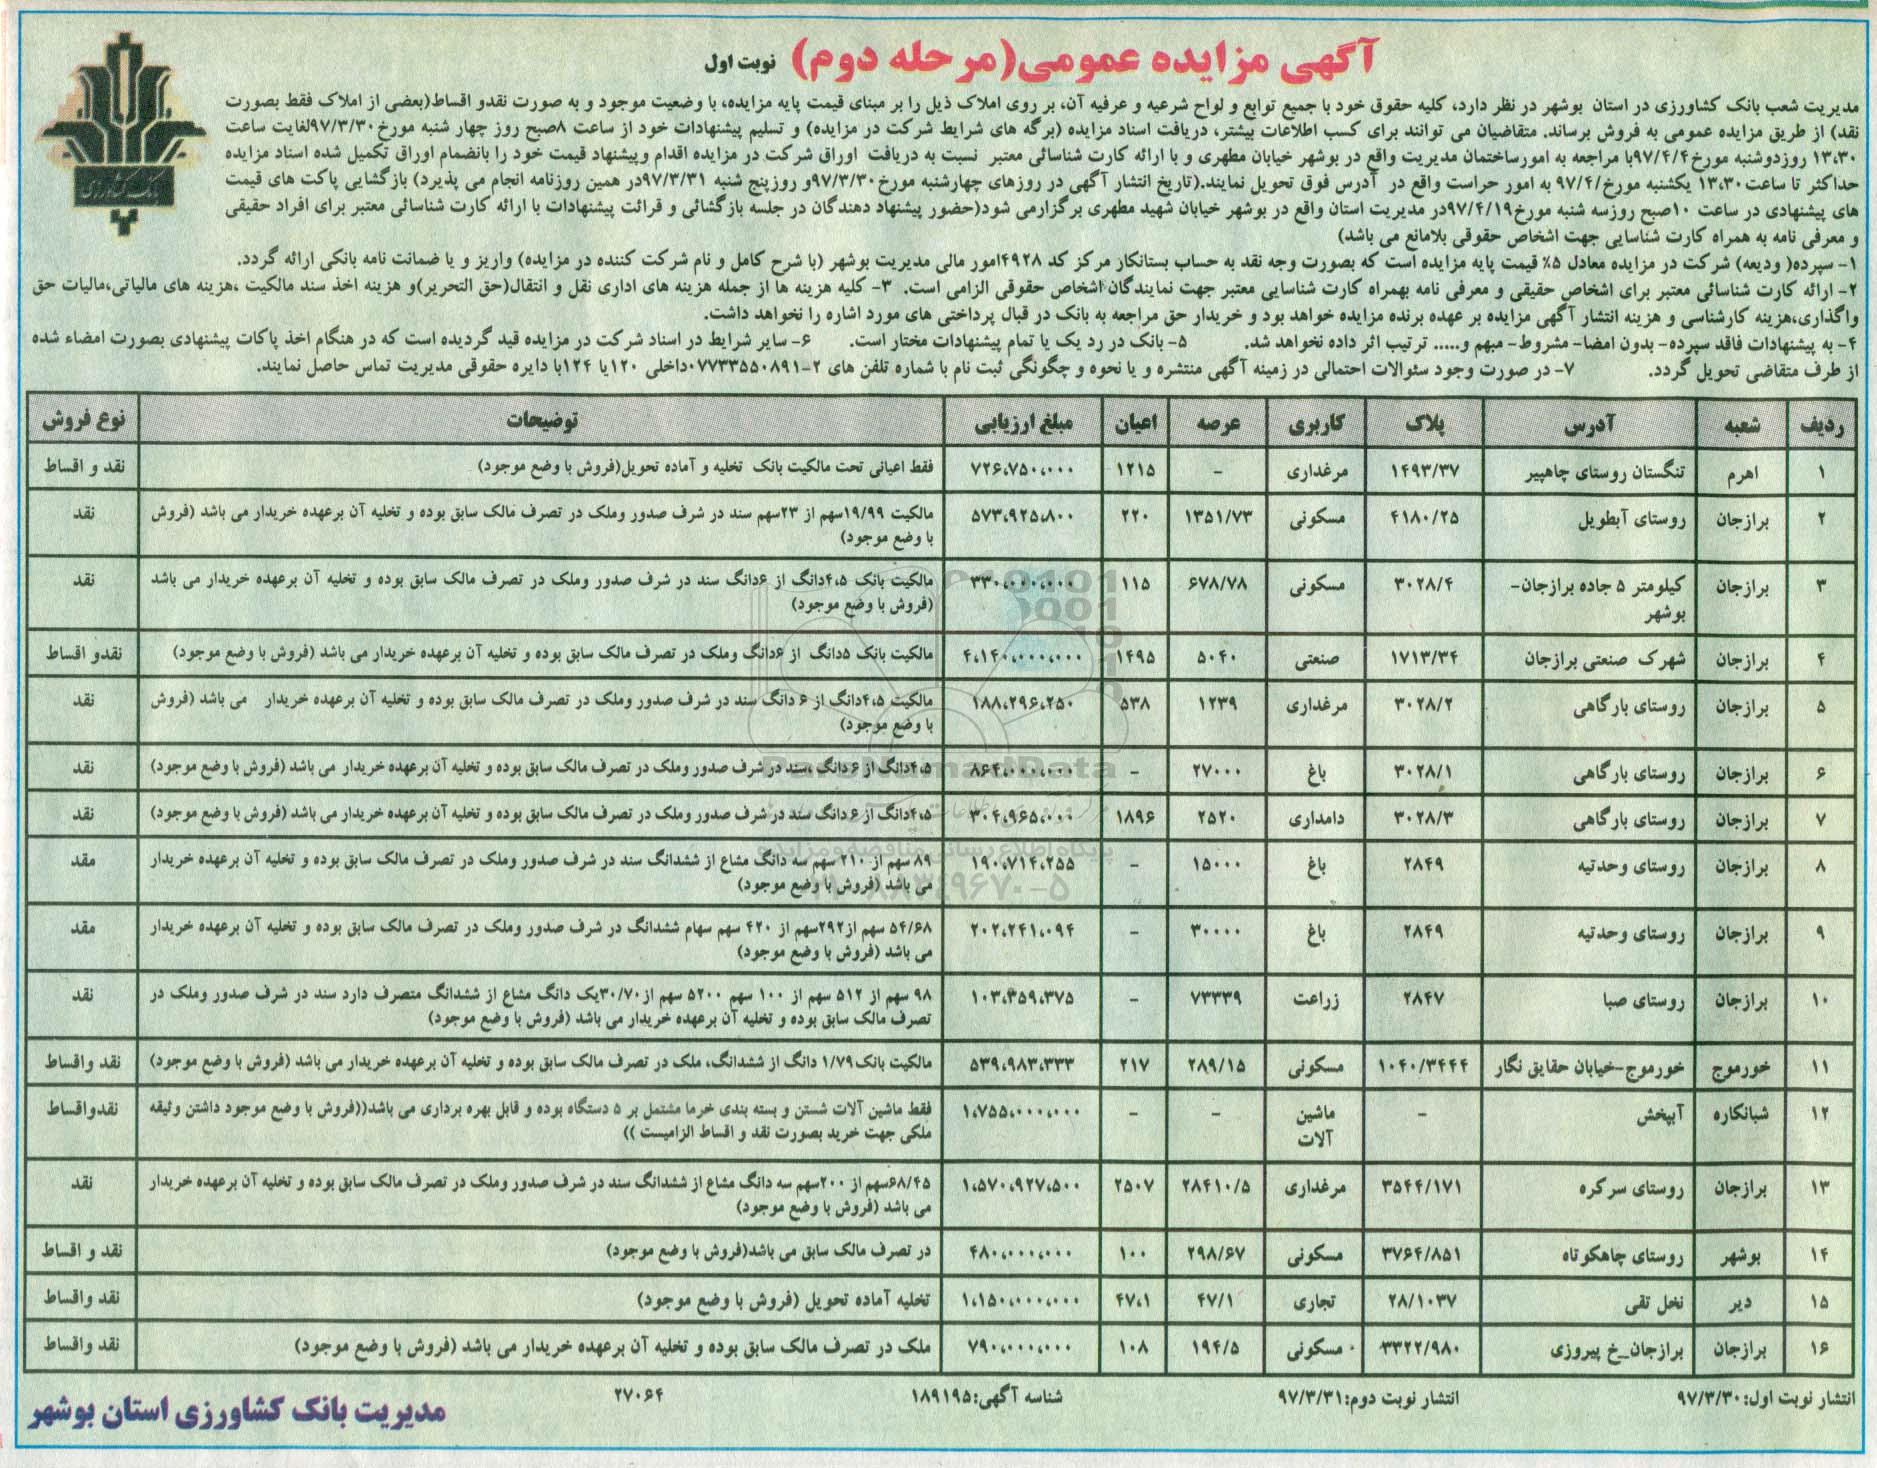 آگهی مزایده عمومی(مرحله دوم) نوبت اول
بانک کشاورزی
مدیریت شعب بانک کشاورزی در استان بوشهر در نظر دارد، کلیه حقوق خود با جمیع توابع و لواح شرعیه و عرفیه آن، بر روی املاک ذیل را بر مبنای قیمت پایه مزایده، با وضعیت موجود و به صورت نقدو اقساط(بعضی از املاک فقط بصورت
نقد) از طریق مزایده عمومی به فروش برساند. متقاضیان می توانند برای کسب اطلاعات بیشتر، دریافت اسناد مزایده (برگه های شرایط شرکت در مزایده) و تسلیم پیشنهادات خود از ساعت ۸صبح روز چهار شنبه مورخ۹۷/۳/۳۰لغایت ساعت
۱۳،۳۰ روزدوشنبه مورخ۹۷/۴/۴با مراجعه به امورساختمان مدیریت واقع در بوشهر خیابان مطهری و با ارائه کارت شناسائی معتبر نسبت به دریافت اوراق شرکت در مزایده اقدام وپیشنهاد قیمت خود را بانضمام اوراق تکمیل شده اسناد مزایده
حداکثر تا ساعت۱۳،۳۰ یکشنبه مورخ۹۷/۴/ به امور حراست واقع در آدرس فوق تحویل نمایند.(تاریخ انتشار آگهی در روزهای چهارشنبه مورخ۹۷/۳/۳۰و روزپنج شنبه ۹۷/۳/۳۱در همین روزنامه انجام می پذیرد) بازگشایی پاکت های قیمت
های پیشنهادی در ساعت ۱۰صبح روزسه شنبه مورخ۹۷/۴/۱۹در مدیریت استان واقع در بوشهر خیابان شهید مطهری برگزارمی شود(حضور پیشنهاد دهندگان در جلسه بازگشائی و قرائت پیشنهادات با ارائه کارت شناسائی معتبر برای افراد حقیقی
و معرفی نامه به همراه کارت شناسایی جهت اشخاص حقوقی بلامانع می باشد)
۱- سپرده( ودیعه) شرکت در مزایده معادل ۵٪ قیمت پایه مزایده است که بصورت وجه نقد به حساب بستانکار مرکز کد ۴۹۲۸امور مالی مدیریت بوشهر (با شرح کامل و نام شرکت کننده در مزایده) واریز و یا ضمانت نامه بانکی ارائه گردد.
۲- ارائه کارت شناسائی معتبر برای اشخاص حقیقی و معرفی نامه بهمراه کارت شناسایی معتبر جهت نمایندگان اشخاص حقوقی الزامی است. ۳- کلیه هزینه ها از جمله هزینه های اداری نقل و انتقال(حق التحریر)و هزینه اخذ سند مالکیت ،هزینه های مالیاتی،مالیات حق
واگذاری،هزینه کارشناسی و هزینه انتشار آگهی مزایده بر عهده برنده مزایده خواهد بود و خریدار حق مراجعه به بانک در قبال پرداختی های مورد اشاره را نخواهد داشت.
۴- به پیشنهادات فاقد سپرده- بدون امضا- مشروط- مبهم و..... ترتیب اثر داده نخواهد شد. ۵- بانک در رد یک یا تمام پیشنهادات مختار است. ۶- سایر شرایط در اسناد شرکت در مزایده قید گردیده است که در هنگام اخذ پاکات پیشنهادی بصورت امضاء شده
از طرف متقاضی تحویل گردد. ۷- در صورت وجود سئوالات احتمالی در زمینه آگهی منتشره و یا نحوه و چگونگی ثبت نام با شماره تلفن های ۲-۰۷۷۳۳۵۵۰۸۹۱داخلی ۱۲۰یا ۱۲۴با دایره حقوقی مدیریت تماس حاصل نمایند.
ردیف شعبه آدرس پلاک کاربری عرصه اعیان مبلغ ارزیابی توضیحات نوع فروش
۱ اهرم تنگستان روستای چاهپیر ۱۴۹۳/۳۷ مرغداری - ۱۲۱۵ ۷۲۶،۷۵۰،۰۰۰ فقط اعیانی تحت مالکیت بانک تخلیه و آماده تحویل(فروش با وضع موجود) نقد و اقساط
۲ برازجان روستای آبطویل ۴۱۸۰/۲۵ مسکونی ۱۳۵۱/۷۳ ۲۲۰ ۵۷۳،۹۲۵،۸۰۰ مالکیت ۱۹/۹۹سهم از ۲۳سهم سند در شرف صدور وملک در تصرف مالک سابق بوده و تخلیه آن برعهده خریدار می باشد (فروش نقد
با وضع موجود)
۳ برازجان کیلومتر ۵ جاده برازجان- ۳۰۲۸/۴ مسکونی ۶۷۸/۷۸ ۱۱۵ ۳۳۰،۰۰۰،۰۰۰ مالکیت بانک ۴،۵دانگ از ۶دانگ سند در شرف صدور وملک در تصرف مالک سابق بوده و تخلیه آن برعهده خریدار می باشد نقد
بوشهر (فروش با وضع موجود)
۴ برازجان شهرک صنعتی برازجان ۱۷۱۳/۳۴ صنعتی ۵۰۴۰ ۱۴۹۵ ۴،۱۴۰،۰۰۰،۰۰۰ مالکیت بانک ۵دانگ از ۶دانگ وملک در تصرف مالک سابق بوده و تخلیه آن برعهده خریدار می باشد (فروش با وضع موجود) نقدو اقساط
۵ برازجان روستای بارگاهی ۳۰۲۸/۲ مرغداری ۱۲۳۹ ۵۳۸ ۱۸۸،۲۹۶،۲۵۰ مالکیت ۴،۵دانگ از ۶ دانگ سند در شرف صدور وملک در تصرف مالک سابق بوده و تخلیه آن برعهده خریدار می باشد (فروش نقد
با وضع موجود)
۶ برازجان روستای بارگاهی ۳۰۲۸/۱ باغ ۲۷۰۰۰ - ۸۶۴،۰۰۰،۰۰۰ ۴،۵دانگ از ۶ دانگ ،سند در شرف صدور وملک در تصرف مالک سابق بوده و تخلیه آن برعهده خریدار می باشد (فروش با وضع موجود) نقد
۷ برازجان روستای بارگاهی ۳۰۲۸/۳ دامداری ۲۵۲۰ ۱۸۹۶ ۳۰۴،۹۶۵،۰۰۰ ۴،۵دانگ از ۶ دانگ سند در شرف صدور وملک در تصرف مالک سابق بوده و تخلیه آن برعهده خریدار می باشد (فروش با وضع موجود) نقد
۸ برازجان روستای وحدتیه ۲۸۴۹ باغ ۱۵۰۰۰ - ۱۹۰،۷۱۴،۲۵۵ ۸۹ سهم از ۲۱۰ سهم سه دانگ مشاع از ششدانگ سند در شرف صدور وملک در تصرف مالک سابق بوده و تخلیه آن برعهده خریدار مقد
می باشد (فروش با وضع موجود)
۹ برازجان روستای وحدتیه ۲۸۴۹ باغ ۳۰۰۰۰ - ۲۰۲،۲۴۱،۰۹۴ ۵۴/۶۸ سهم از۲۹۲سهم از ۴۲۰ سهم سهام ششدانگ در شرف صدور وملک در تصرف مالک سابق بوده و تخلیه آن برعهده خریدار مقد
می باشد (فروش با وضع موجود)
۱۰ برازجان روستای صبا ۲۸۴۷ زراعت ۷۳۳۳۹ - ۱۰۳،۳۵۹،۳۷۵ ۹۸ سهم از ۵۱۲ سهم از ۱۰۰ سهم ۵۲۰۰ سهم از۳۰/۷۰یک دانگ مشاع از ششدانگ متصرف دارد سند در شرف صدور وملک در نقد
تصرف مالک سابق بوده و تخلیه آن برعهده خریدار می باشد (فروش با وضع موجود)
۱۱ خورموج خورموج-خیابان حقایق نگار ۱۰۴۰/۳۴۴۴ مسکونی ۲۸۹/۱۵ ۲۱۷ ۵۳۹،۹۸۳،۳۳۳ مالکیت بانک۱/۷۹ دانگ از ششدانگ، ملک در تصرف مالک سابق بوده و تخلیه آن برعهده خریدار می باشد (فروش با وضع موجود) نقد واقساط
۱۲ شبانکاره آبپخش - ماشین - - ۱،۷۵۵،۰۰۰،۰۰۰ فقط ماشین آلات شستن و بسته بندی خرما مشتمل بر ۵ دستگاه بوده و قابل بهره برداری می باشد((فروش با وضع موجود داشتن وثیقه نقدواقساط
آلات ملکی جهت خرید بصورت نقد و اقساط الزامیست ))
۱۳ برازجان روستای سرکره ۳۵۴۴/۱۷۱ مرغداری ۲۸۴۱۰/۵ ۲۵۰۷ ۱،۵۷۰،۹۲۷،۵۰۰ ۶۸/۴۵سهم از ۲۰۰سهم سه دانگ مشاع از ششدانگ سند در شرف صدور وملک در تصرف مالک سابق بوده و تخلیه آن برعهده خریدار نقد
می باشد (فروش با وضع موجود)
۱۴ بوشهر روستای چاهکوتاه ۳۷۶۴/۸۵۱ مسکونی ۲۹۸/۶۷ ۱۰۰ ۴۸۰،۰۰۰،۰۰۰ در تصرف مالک سابق می باشد(فروش با وضع موجود) نقد و اقساط
۱۵ دیر نخل تقی ۲۸/۱۰۳۷ تجاری ۴۷/۱ ۴۷،۱ ۱،۱۵۰،۰۰۰،۰۰۰ تخلیه آماده تحویل (فروش با وضع موجود) نقد واقساط
۱۶ برازجان برازجان_خ پیروزی ۳۳۲۲/۹۸۰ مسکونی ۱۹۴/۵ ۱۰۸ ۷۹۰،۰۰۰،۰۰۰ ملک در تصرف مالک سابق بوده و تخلیه آن برعهده خریدار می باشد (فروش با وضع موجود) نقد واقساط
انتشار نوبت اول:۹۷/۳/۳۰ انتشار نوبت دوم:۹۷/۳/۳۱ شناسه آگهی:۱۸۹۱۹۵ ۲۷۰۶۴
مدیریت بانک کشاورزی استان بوشهر